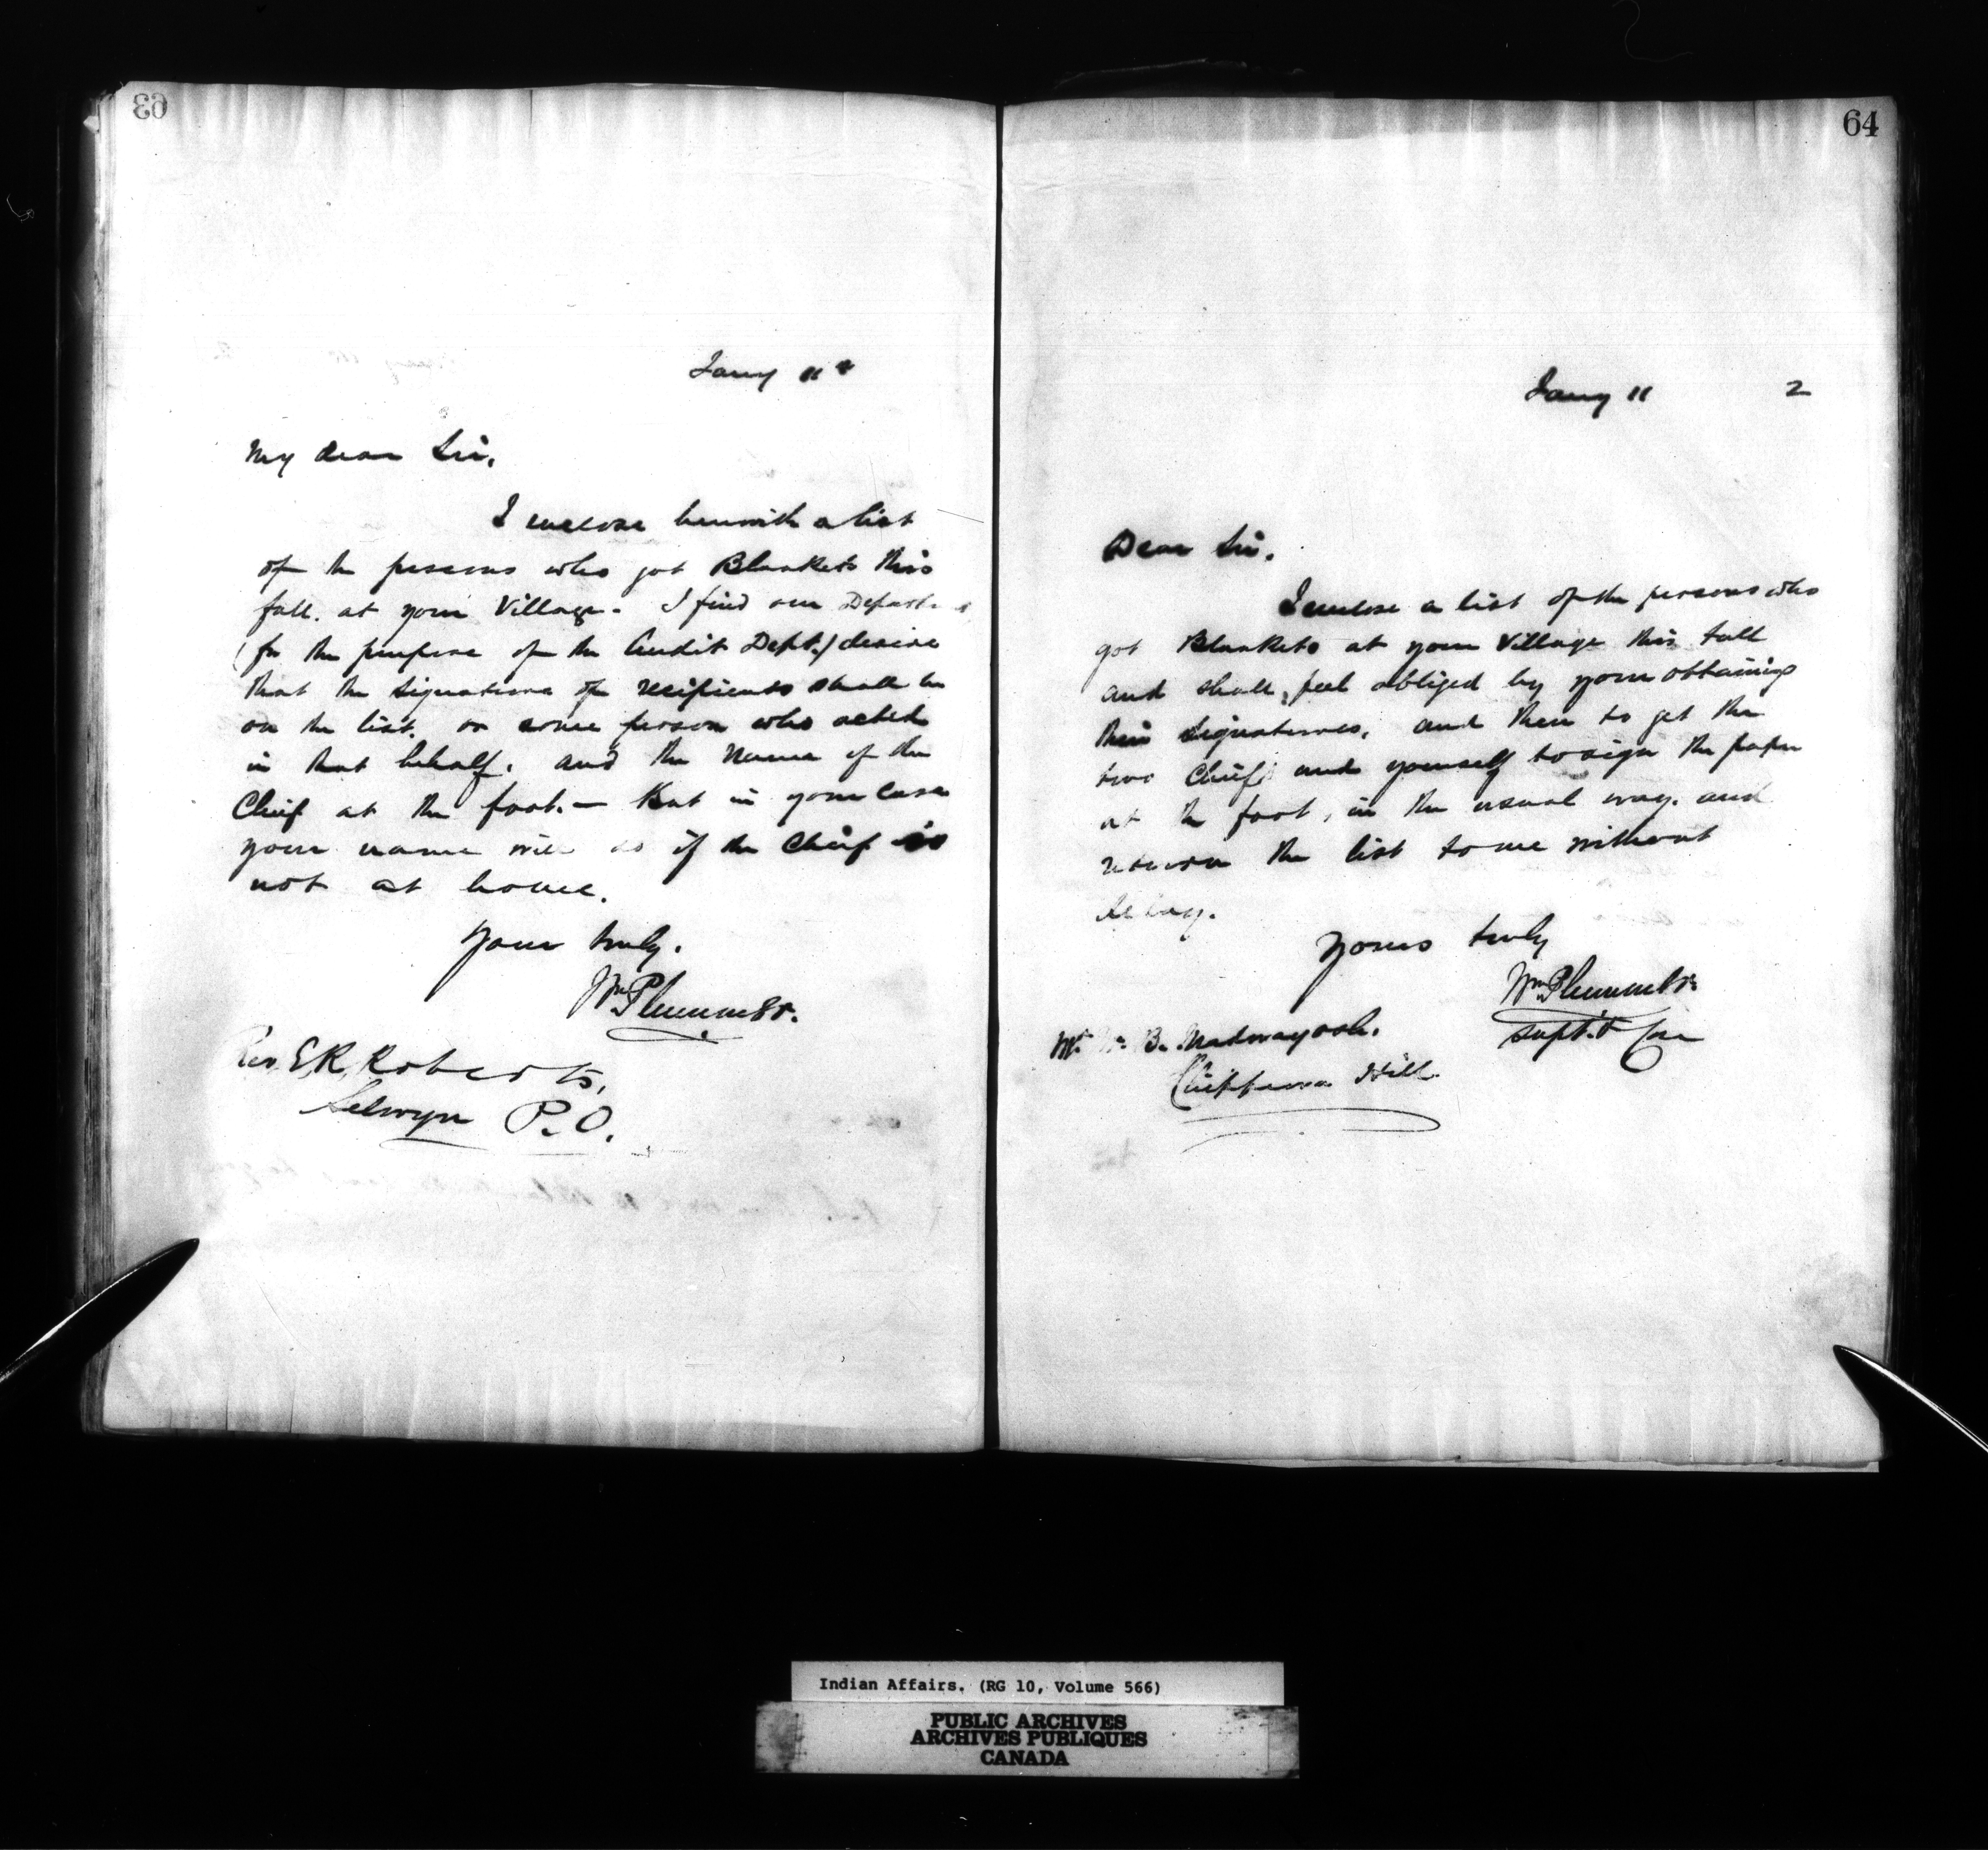 63
Jany 11 2
My dear Sir,
I enclose herewith a list
of the persons who got Blankets this
fall. at your Village. I find our
(for the purpose of the Audit Dept.) desire
that the signatures of recipients shall be
on the list. or some person who acted
in that behalf. and the Name of the
Chief at the foot. — But in your Case
your name will do if the Chief is
not at home.
Yours truly.
Wm Plummer.
Rev. E. R. Roberts,
Selwyn P.O.
64
Jany 11 2
Dear Sir.
I enclose a list of the persons who
got Blankets at your Village this fall
and shall feel obliged by your obtaining
their signatures, and then to get the
two Chiefs and yourself to sign the paper
at the foot, in the usual way. and
return the list to me without
delay.
Yours truly
Wm Plummer
Supt. & Com
Mr B. Madwayosh.
Chippewa Hill.
Indian Affairs. (RG 10, Volume 566)
PUBLIC ARCHIVES
ARCHIVES PUBLIQUES
CANADA